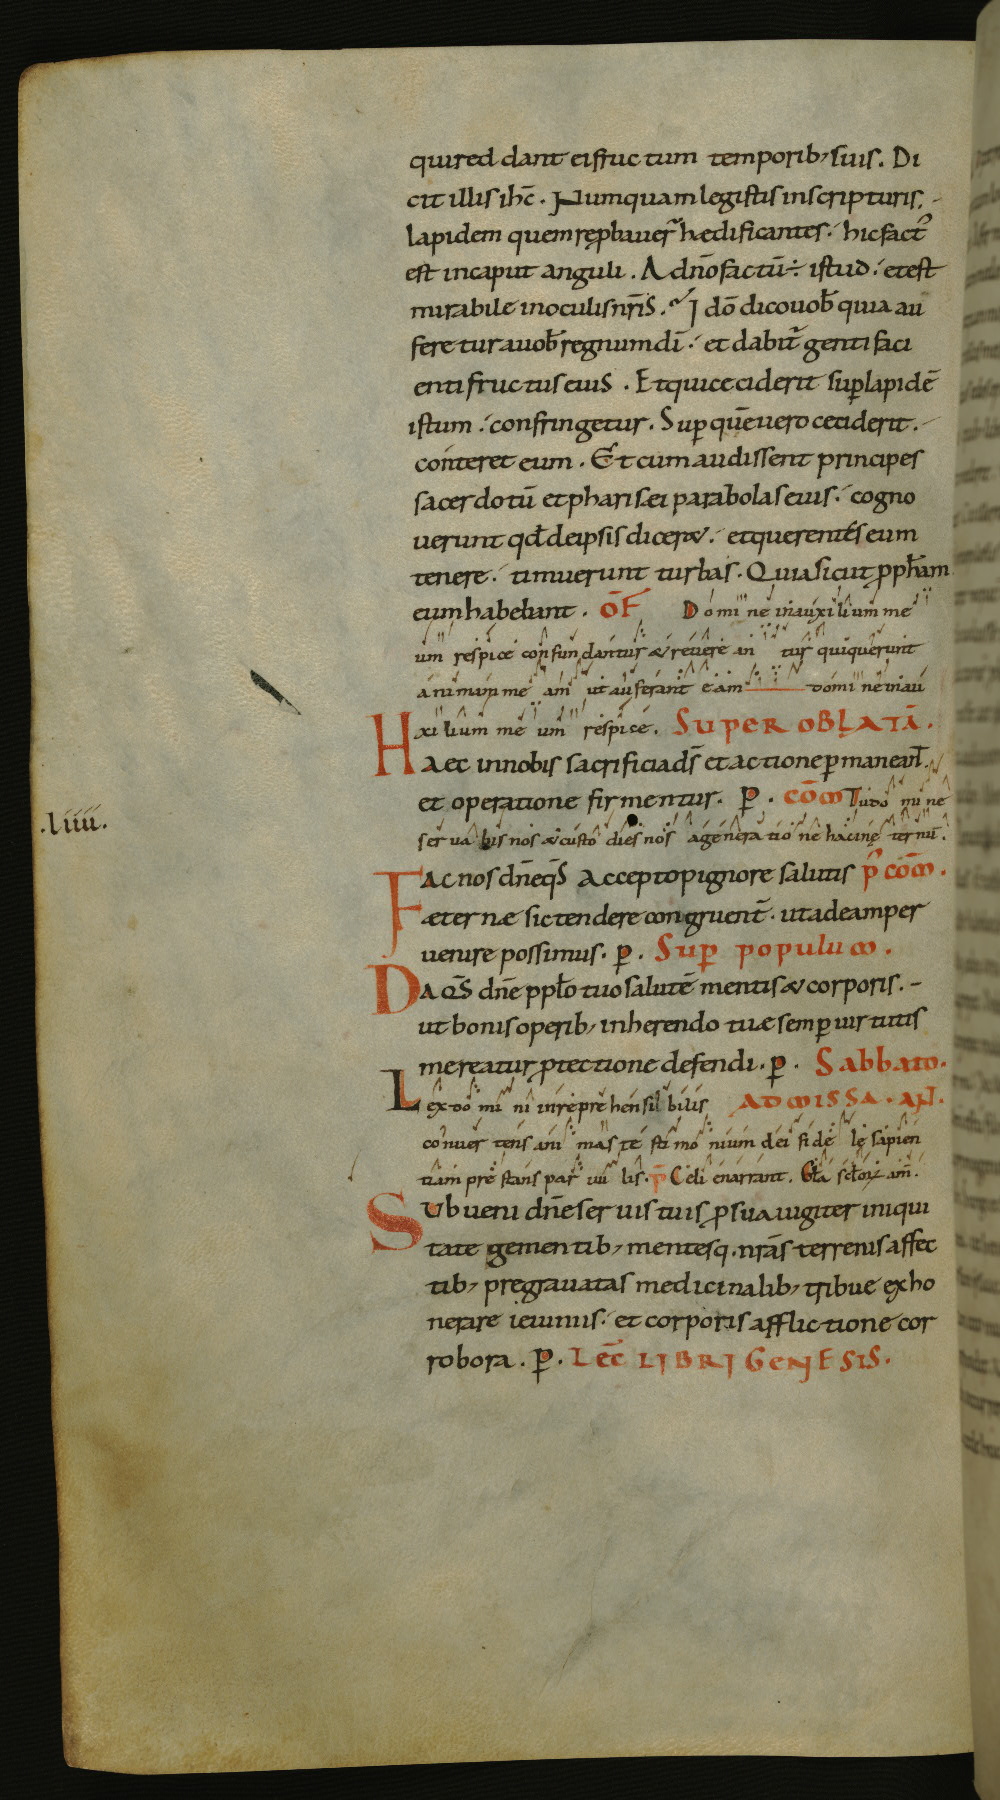 qui reddant ei fructum temporib; suis. Di
cit illis ihc̄. Numquam legistis in scripturis,
lapidem quem reꝓbaueꝝ̄ hædificantes. hic fact᾿
est in caput anguli. A dn̄o factū ÷ istud. et est
mirabile in oculis nr̄is. Idō dico uob̄ quia au
feretur a uob̄ regnum dī. et dabit̄ genti faci
enti fructus eius. Et qui ceciderit sup̄ lapidē
istum. confringetur. Sup quē uero ceciderit.
conteret eum. Et cum audissent principes
sacerdotū et pharisæi parabolas eius. cogno
uerunt qd̄ de ipsis diceret. et querentes eum
tenere. timuerunt turbas. Quia sicut ꝓph̄am
eum habebant. OF Domine in auxilium me
um respice confundantur & reuereantur qui querunt
animam meam ut auferant eam domine in au
xilium meum respice. SUPER OBLATĀ.
Haec in nobis sacrificia ds̄ et actione ꝑmaneant.
et operatione firmentur. ꝑ. COM̄ Tu domine
seruabis nos & custodies nos a generatione hac in ęternū.
Fac nos dn̄e qs̄ accepto pignore salutis P̄ COM̄.
æternæ sic tendere congruent̄. ut ad eam per
uenire possimus. ꝑ. Suꝑ populum.
Da qs̄ dn̄e ppło tuo salutē mentis & corporis.
ut bonis operib; inherendo tuæ semꝑ uirtutis
mereatur ꝓtectione defendi. ꝑ. Sabbato.
Lex domini inreprehensibilis AD MISSA. AN.
conuertens animas testimonium dei fidele sapien
tiam prestans paruulis. P̄ Celi enarrant. Gła scłorum am̄.
Subueni dn̄e seruis tuis ꝓ sua iugiter iniqui
tate gementib; mentesq. nrās terrenis affec
tib; pregrauatas medicinalib; tribue exho
nerare ieiuniis. et corporis afflictione cor
robora. ꝑ. LEC̄ LIBRI GENESIS.
.liiii.